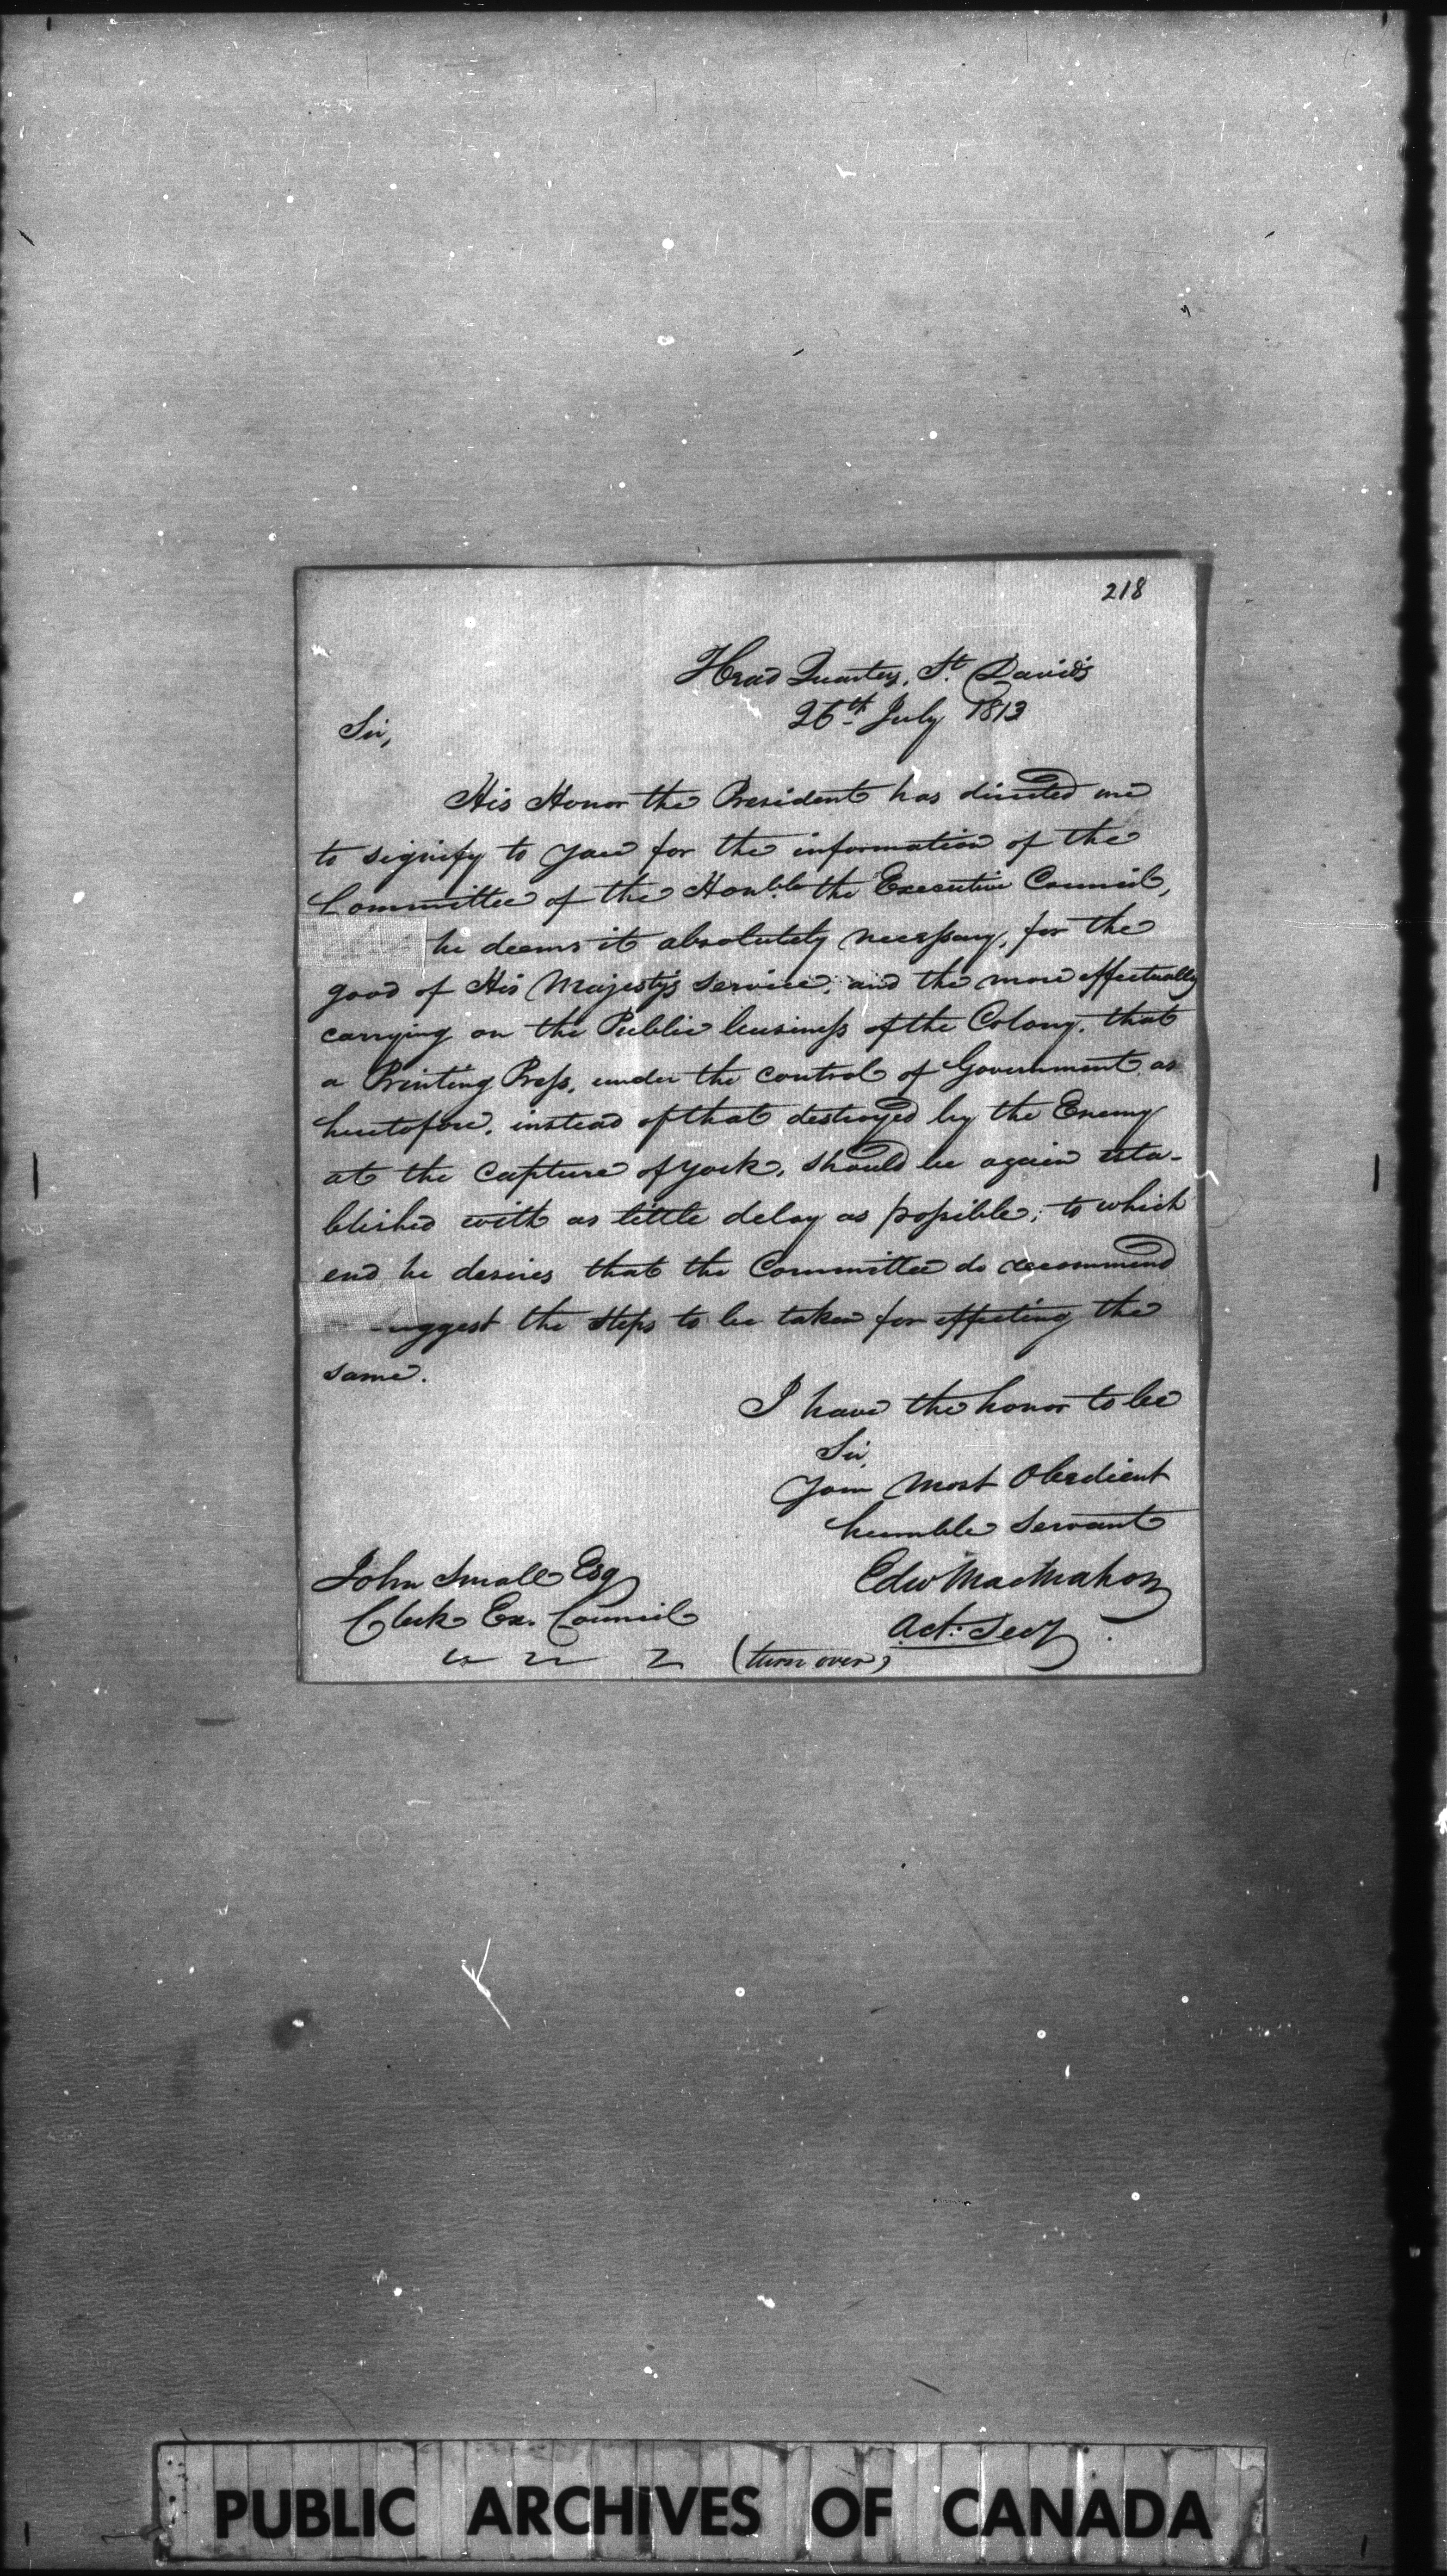 218
Head Quarters, St. Davids
26th July 1813
Sir,
His Honor the President has directed me
to signify to you for the information of the
Committee of the Honble. the Executive Council,
he deems it absolutely necessary, for the
good of His Majesty's Service, and the more effectually
carrying on the Public business of the Colony, that
a Printing Press, under the control of Government as
heretofore, instead of that destroyed by the Enemy
at the Capture of York, should be again esta-
blished with as little delay as possible; to which
end he desires that the Committee do recommend
uggest the steps to be taken for effecting the
same.
I have the honor to be
Sir,
Your Most Obedient
humble Servant
Edw MacMahon
Act: Secy.
John Small Esq
Clerk Ex. Council
(turn over)
PUBLIC ARCHIVES OF CANADA